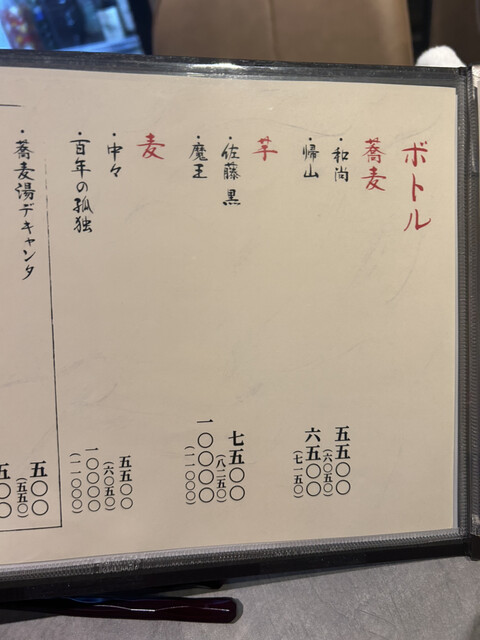 ボトル
蕎麦
・和尚 五五〇〇
(六〇五〇)
・帰山 六五〇〇
(七一五〇)
芋
・佐藤 黒 七五〇〇
(八二五〇)
・魔王 一〇〇〇〇
(一一〇〇〇)
麦
・中々 五五〇〇
(六〇五〇)
・百年の孤独 一〇〇〇〇
(一一〇〇〇)
・蕎麦湯デキャンタ 五〇〇
(五五〇)
五〇〇